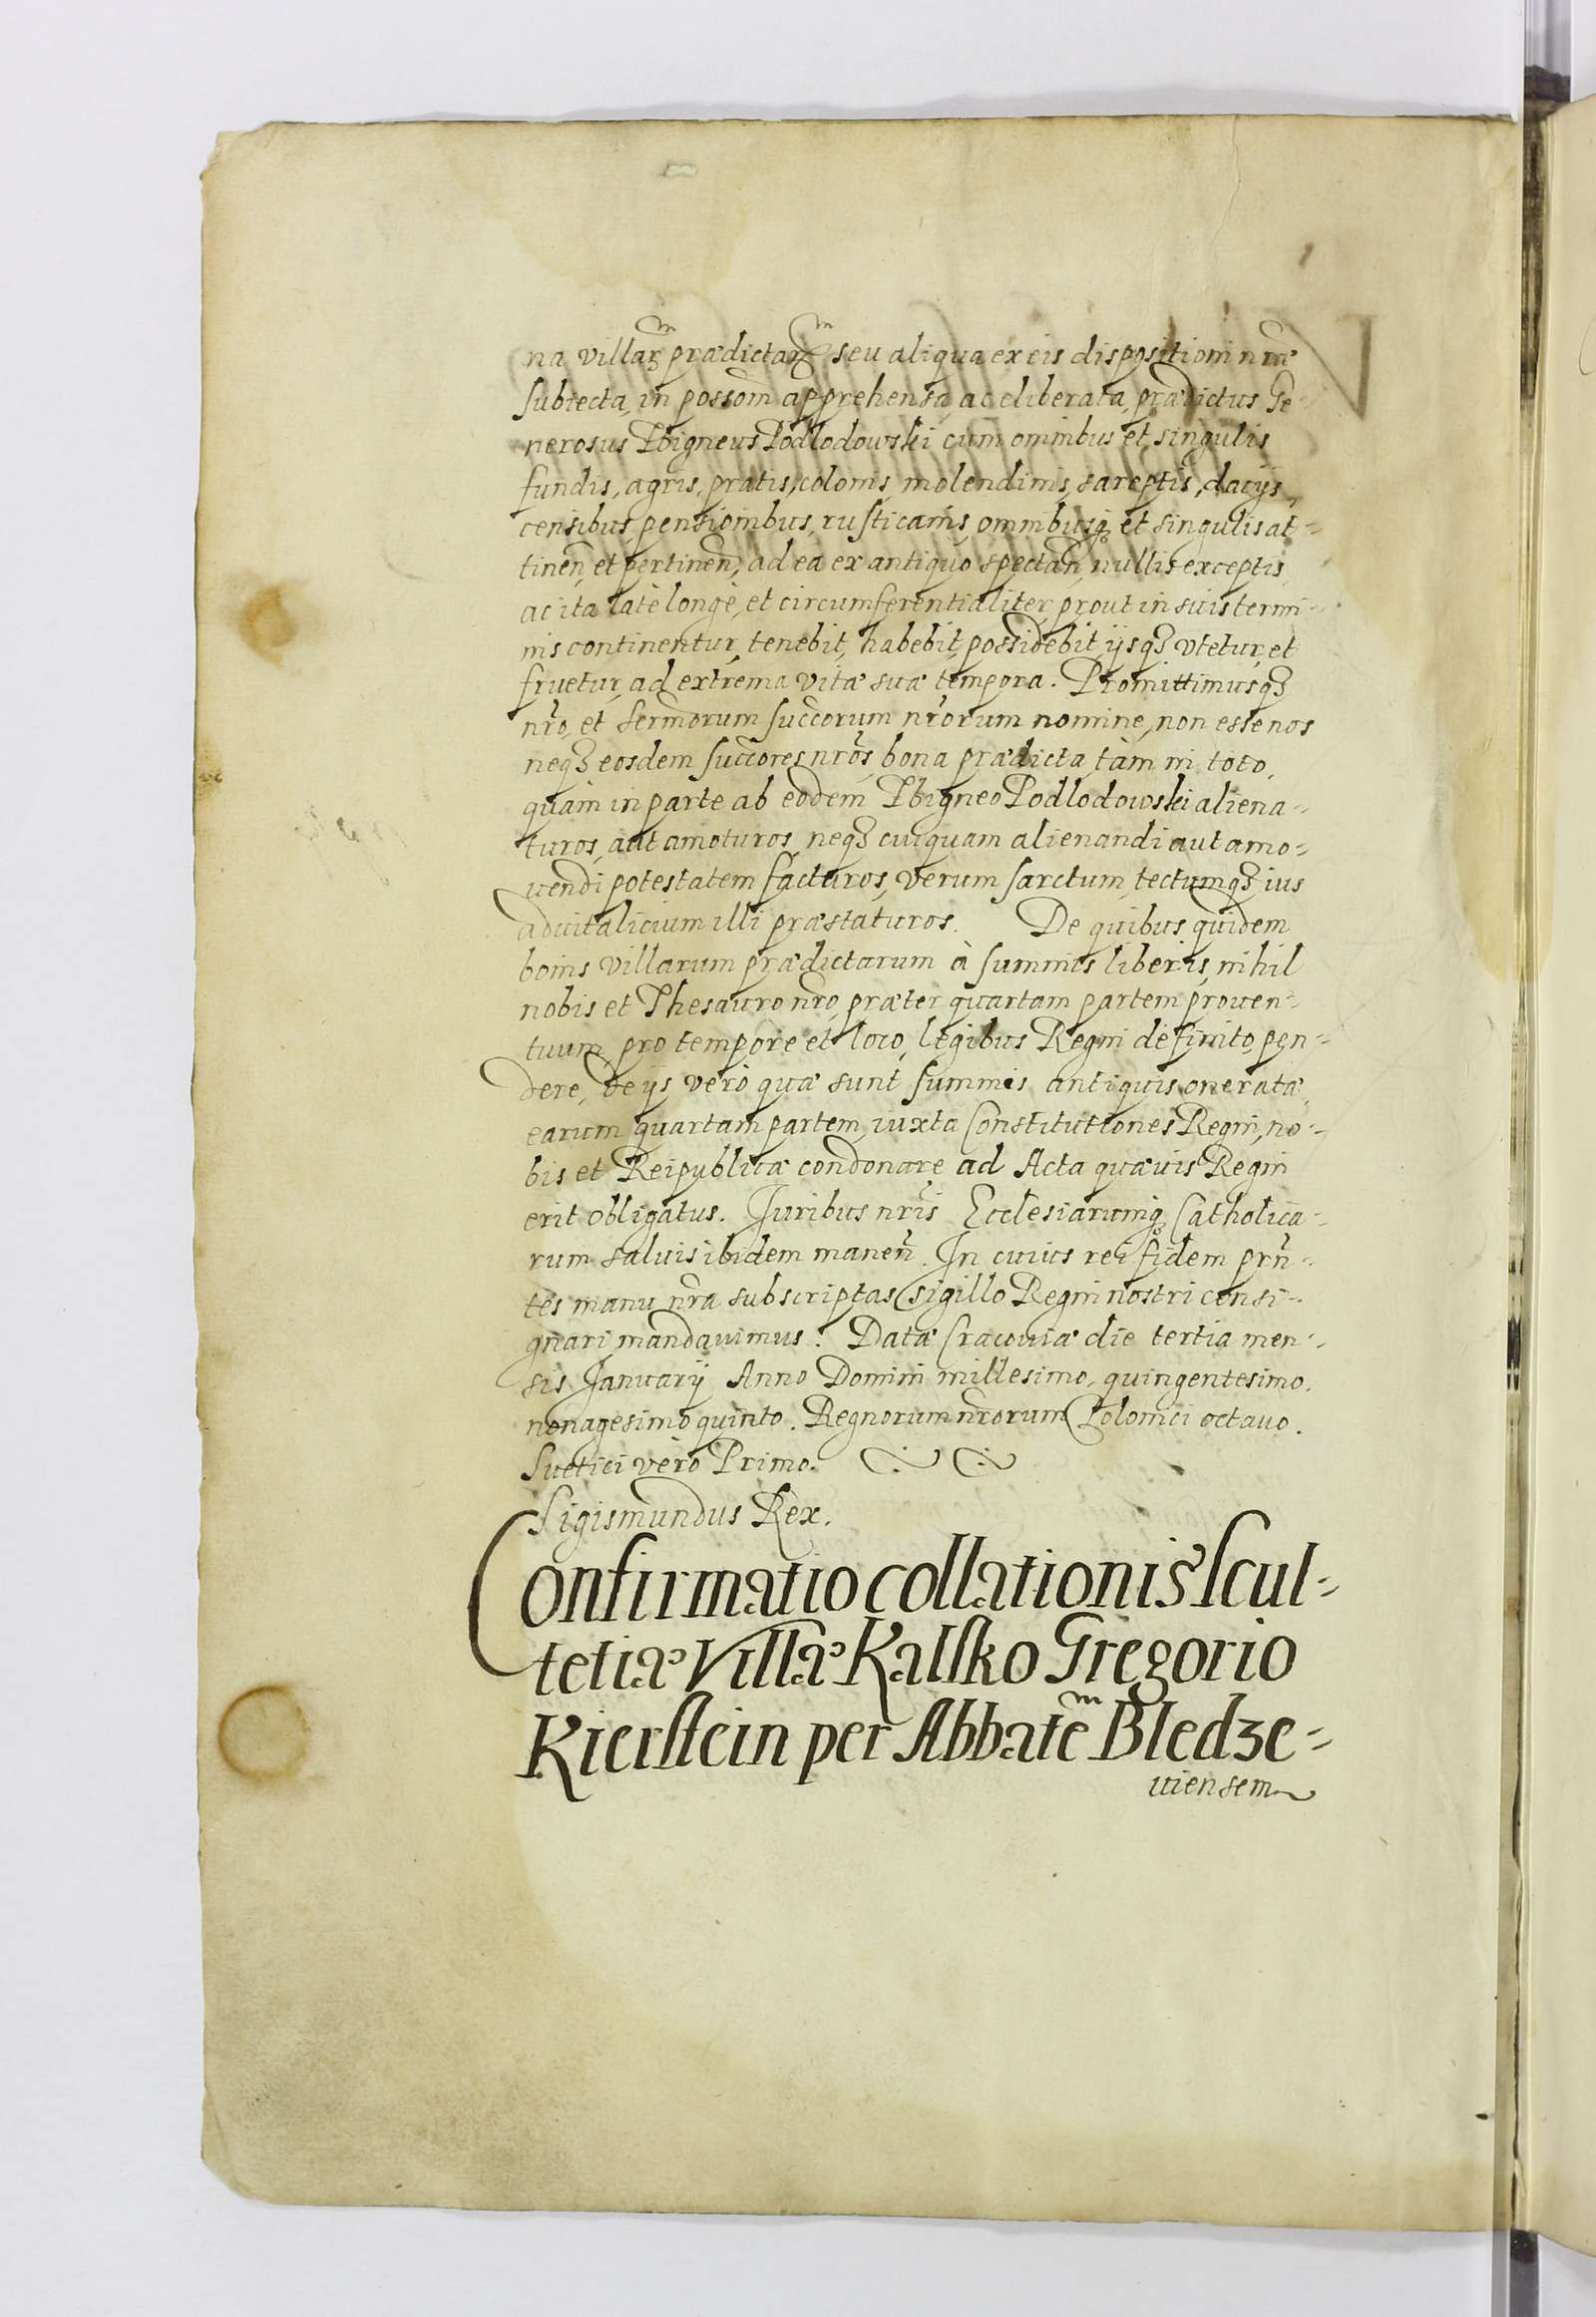 na villarꝫ prædictarꝫ seu aliqua ex eis dispositioni nr̃æ
subiecta, in possom̃ apprehensa, ac eliberata, prædictus Ge-
nerosus Zbigneus Podlodowski cum omnibus et singulis
fundis, agris, pratis, colonis, molendinis, sareptis, dacijs,
censibus, pensionibus, rusticanis, omnibusqꝫ et singulis at-
tinen̄, et pertinen̄, ad ea ex antiquo spectan̄, nullis exceptis,
ac ita latè longè, et circumferentialiter, prout in suis termi-
nis continentur, tenebit, habebit, possidebit, ijsqꝫ vtetur, et
fruetur, ad extrema vitæ suæ tempora. Promittimusqꝫ
nr̃o, et Sermorum succorum nr̃orum nomine, non esse nos
neqꝫ eosdem succores nr̃os, bona prædicta, tàm in toto,
quàm in parte ab eodem Zbigneo Podlodowski aliena-
turos, aut amoturos, neqꝫ cuiquam alienandi aut amo-
uendi potestatem facturos, verum sarctum, tectumqꝫ ius
aduitalicium illi præstaturos. De quibus quidem
bonis villarum prædictarum à summis liberis, nihil
nobis et Thesauro nr̃o, præter quartam partem prouen-
tuum, pro tempore et loco, legibus Regni definito, pen-
dere, de ijs verò quæ sunt summis antiquis oneratæ,
earum quartam partem, iuxta Constitutiones Regni, no-
bis et Reipublicæ condonare ad Acta quæuis Regni
erit obligatus. Juribus nr̃is Ecclesiarumqꝫ Catholica-
rum saluis ibidem manen̄. In cuius rei fidem prñ-
tes manu nr̃a subscriptas, sigillo Regni nostri consi-
gnari mandauimus. Datæ Cracouiæ die tertia men-
sis Januarij Anno Domini millesimo, quingentesimo,
nonagesimo quinto. Regnorum nr̃orum Polonici octauo.
Suetici verò Primo.
Sigismundus Rex.
Confirmatio collationis Scul-
tetiæ Villæ Kalsko Gregorio
Kierstein per Abbatē Bledze-
uiensem